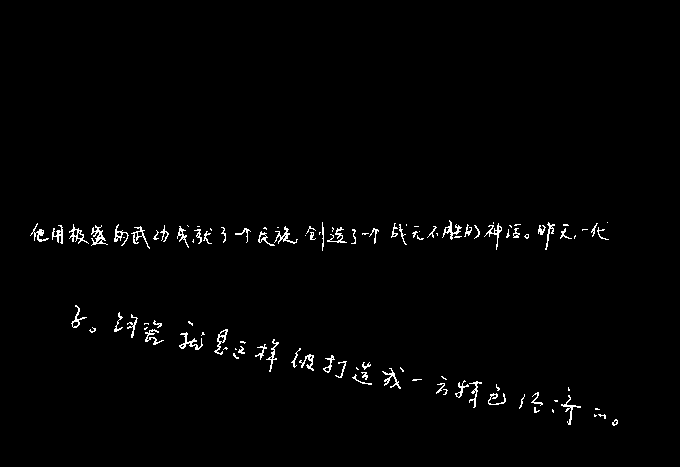 他用极盛的武功成就了一个民族,创造了一个战无不胜的神话。昨天,一代
了。钧瓷就是这样被打造成一方特色经济的。